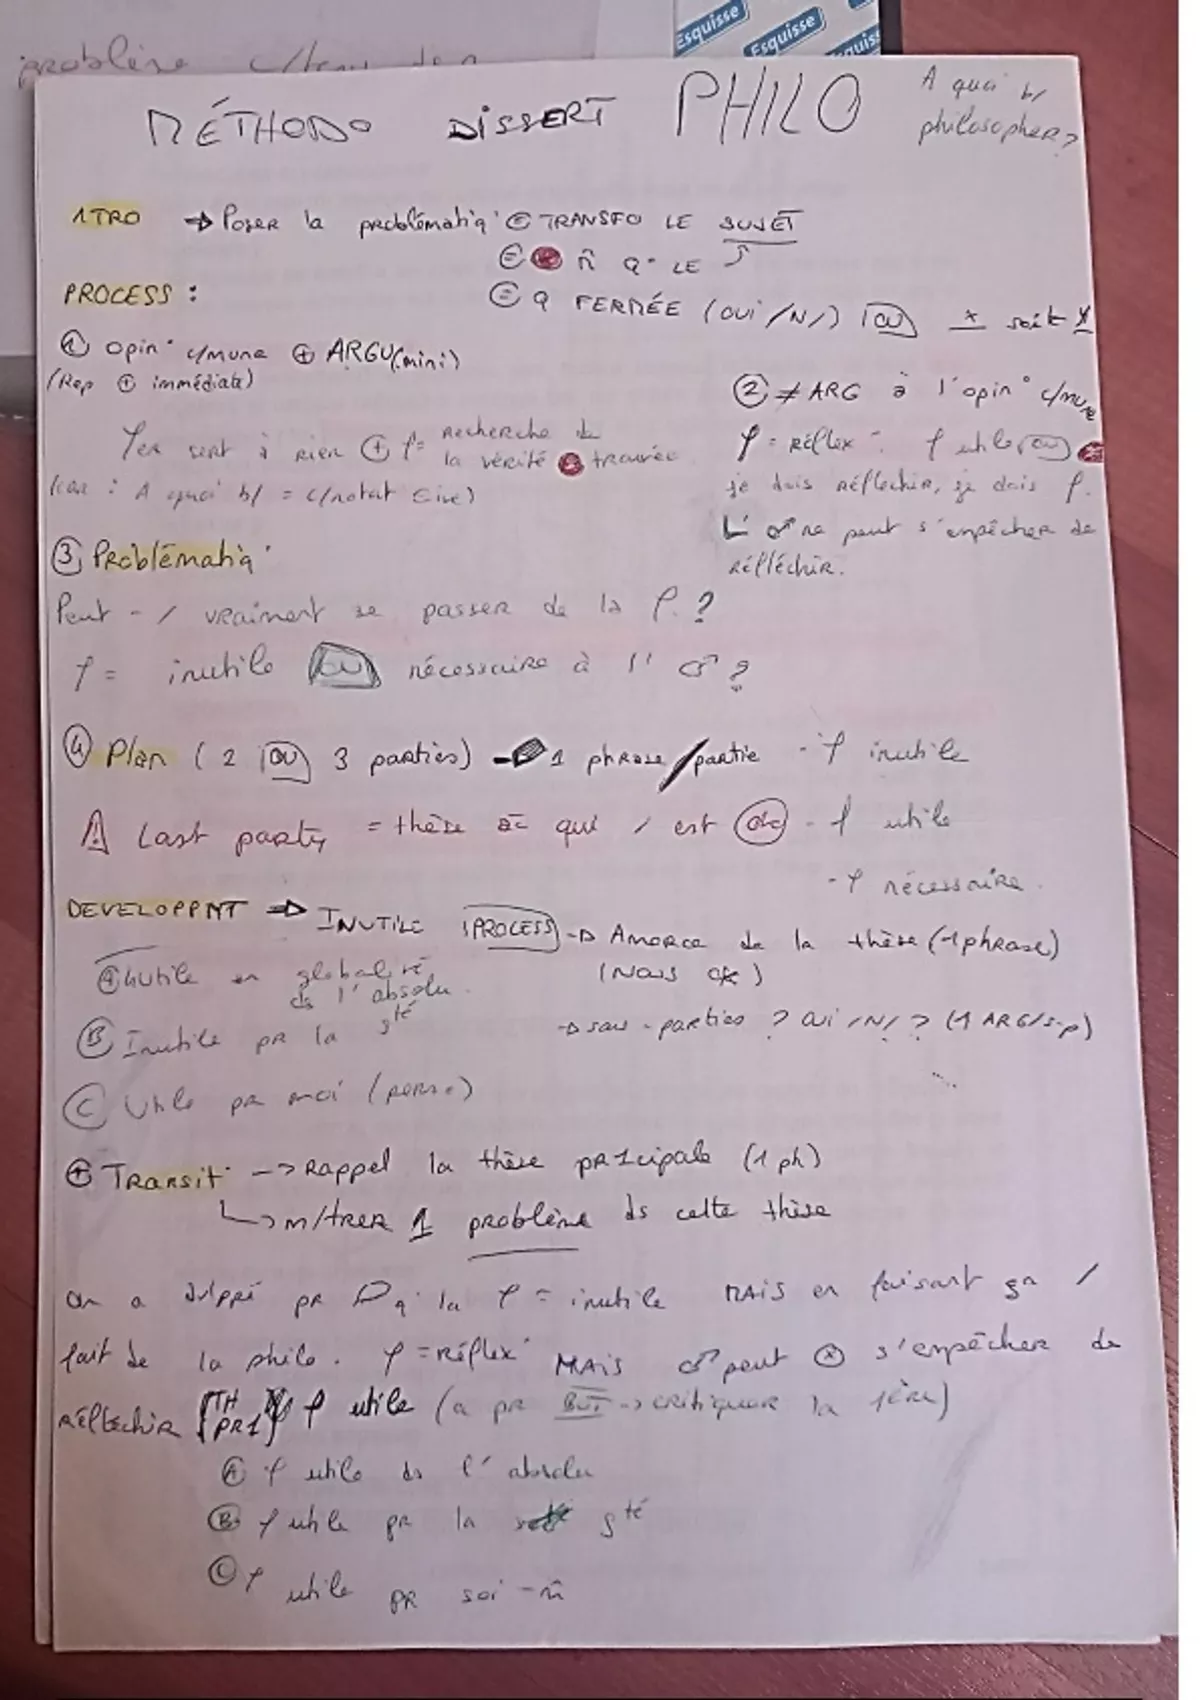 problème
Esquisse
Esquisse
MÉTHODO DISSERT PHILO
A quoi b/
philosopher?
1TRO → Poser la problématiq° = TRANSFO LE SUJET
m̂ q° LE S
PROCESS :
= Q FERMÉE (OUI/N/) ou x soit
① opin° c/mune ⊕ ARGU(mini)
(Rep ⊕ immédiate)
② ≠ ARG à l'opin° c/mune
sert à rien ⊕ φ = recherche de
la vérité trouvée
(car : A quoi b/ = c/notat° ive)
φ = réflex° φ utile ou
je dois réfléchir, je dois φ.
↳ ♂ ne peut s'empêcher de
réfléchir.
③ Problématiq°
Peut-/ vraiment se passer de la φ ?
φ = inutile ou nécessaire à l'♂ ?
④ Plan (2 ou 3 parties) → 1 phrase/partie - φ inutile
⚠ Last party = thèse ac qui / est ok - φ utile
- φ nécessaire.
DEVELOPPMT ⇒ INUTILE (PROCESS) → Amorce de la thèse (1 phrase)
(Nous )
Ⓐ Inutile en globalité,
ds l'absolu.
Ⓑ Inutile pr la sté
→ sous-parties ? oui/N/ ? (1 ARG/s-p)
Ⓒ Utile pr moi (perso)
⊕ Transit° → Rappel la thèse pr1cipale (1 ph)
↳ m/trer 1 problème ds cette thèse
on a dvlppé pr q° la φ = inutile MAIS en faisant ça /
fait de la philo. φ = Réflex° MAIS ♂ peut ⊗ s'empêcher de
réfléchir [TH PR1] φ utile (a pr BUT → critiquer la 1ère)
Ⓐ φ utile ds l'absolu
Ⓑ φ utile pr la sté
Ⓒ φ utile pr soi-m̂